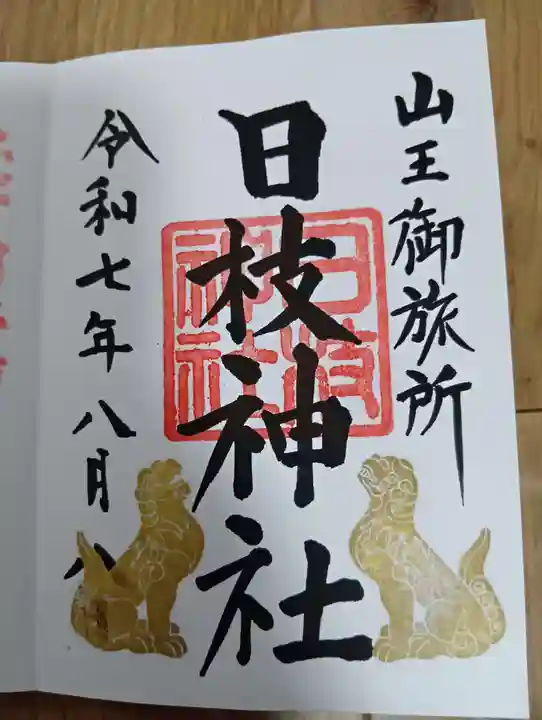 山王御旅所
日枝神社
日枝神社
令和七年八月八